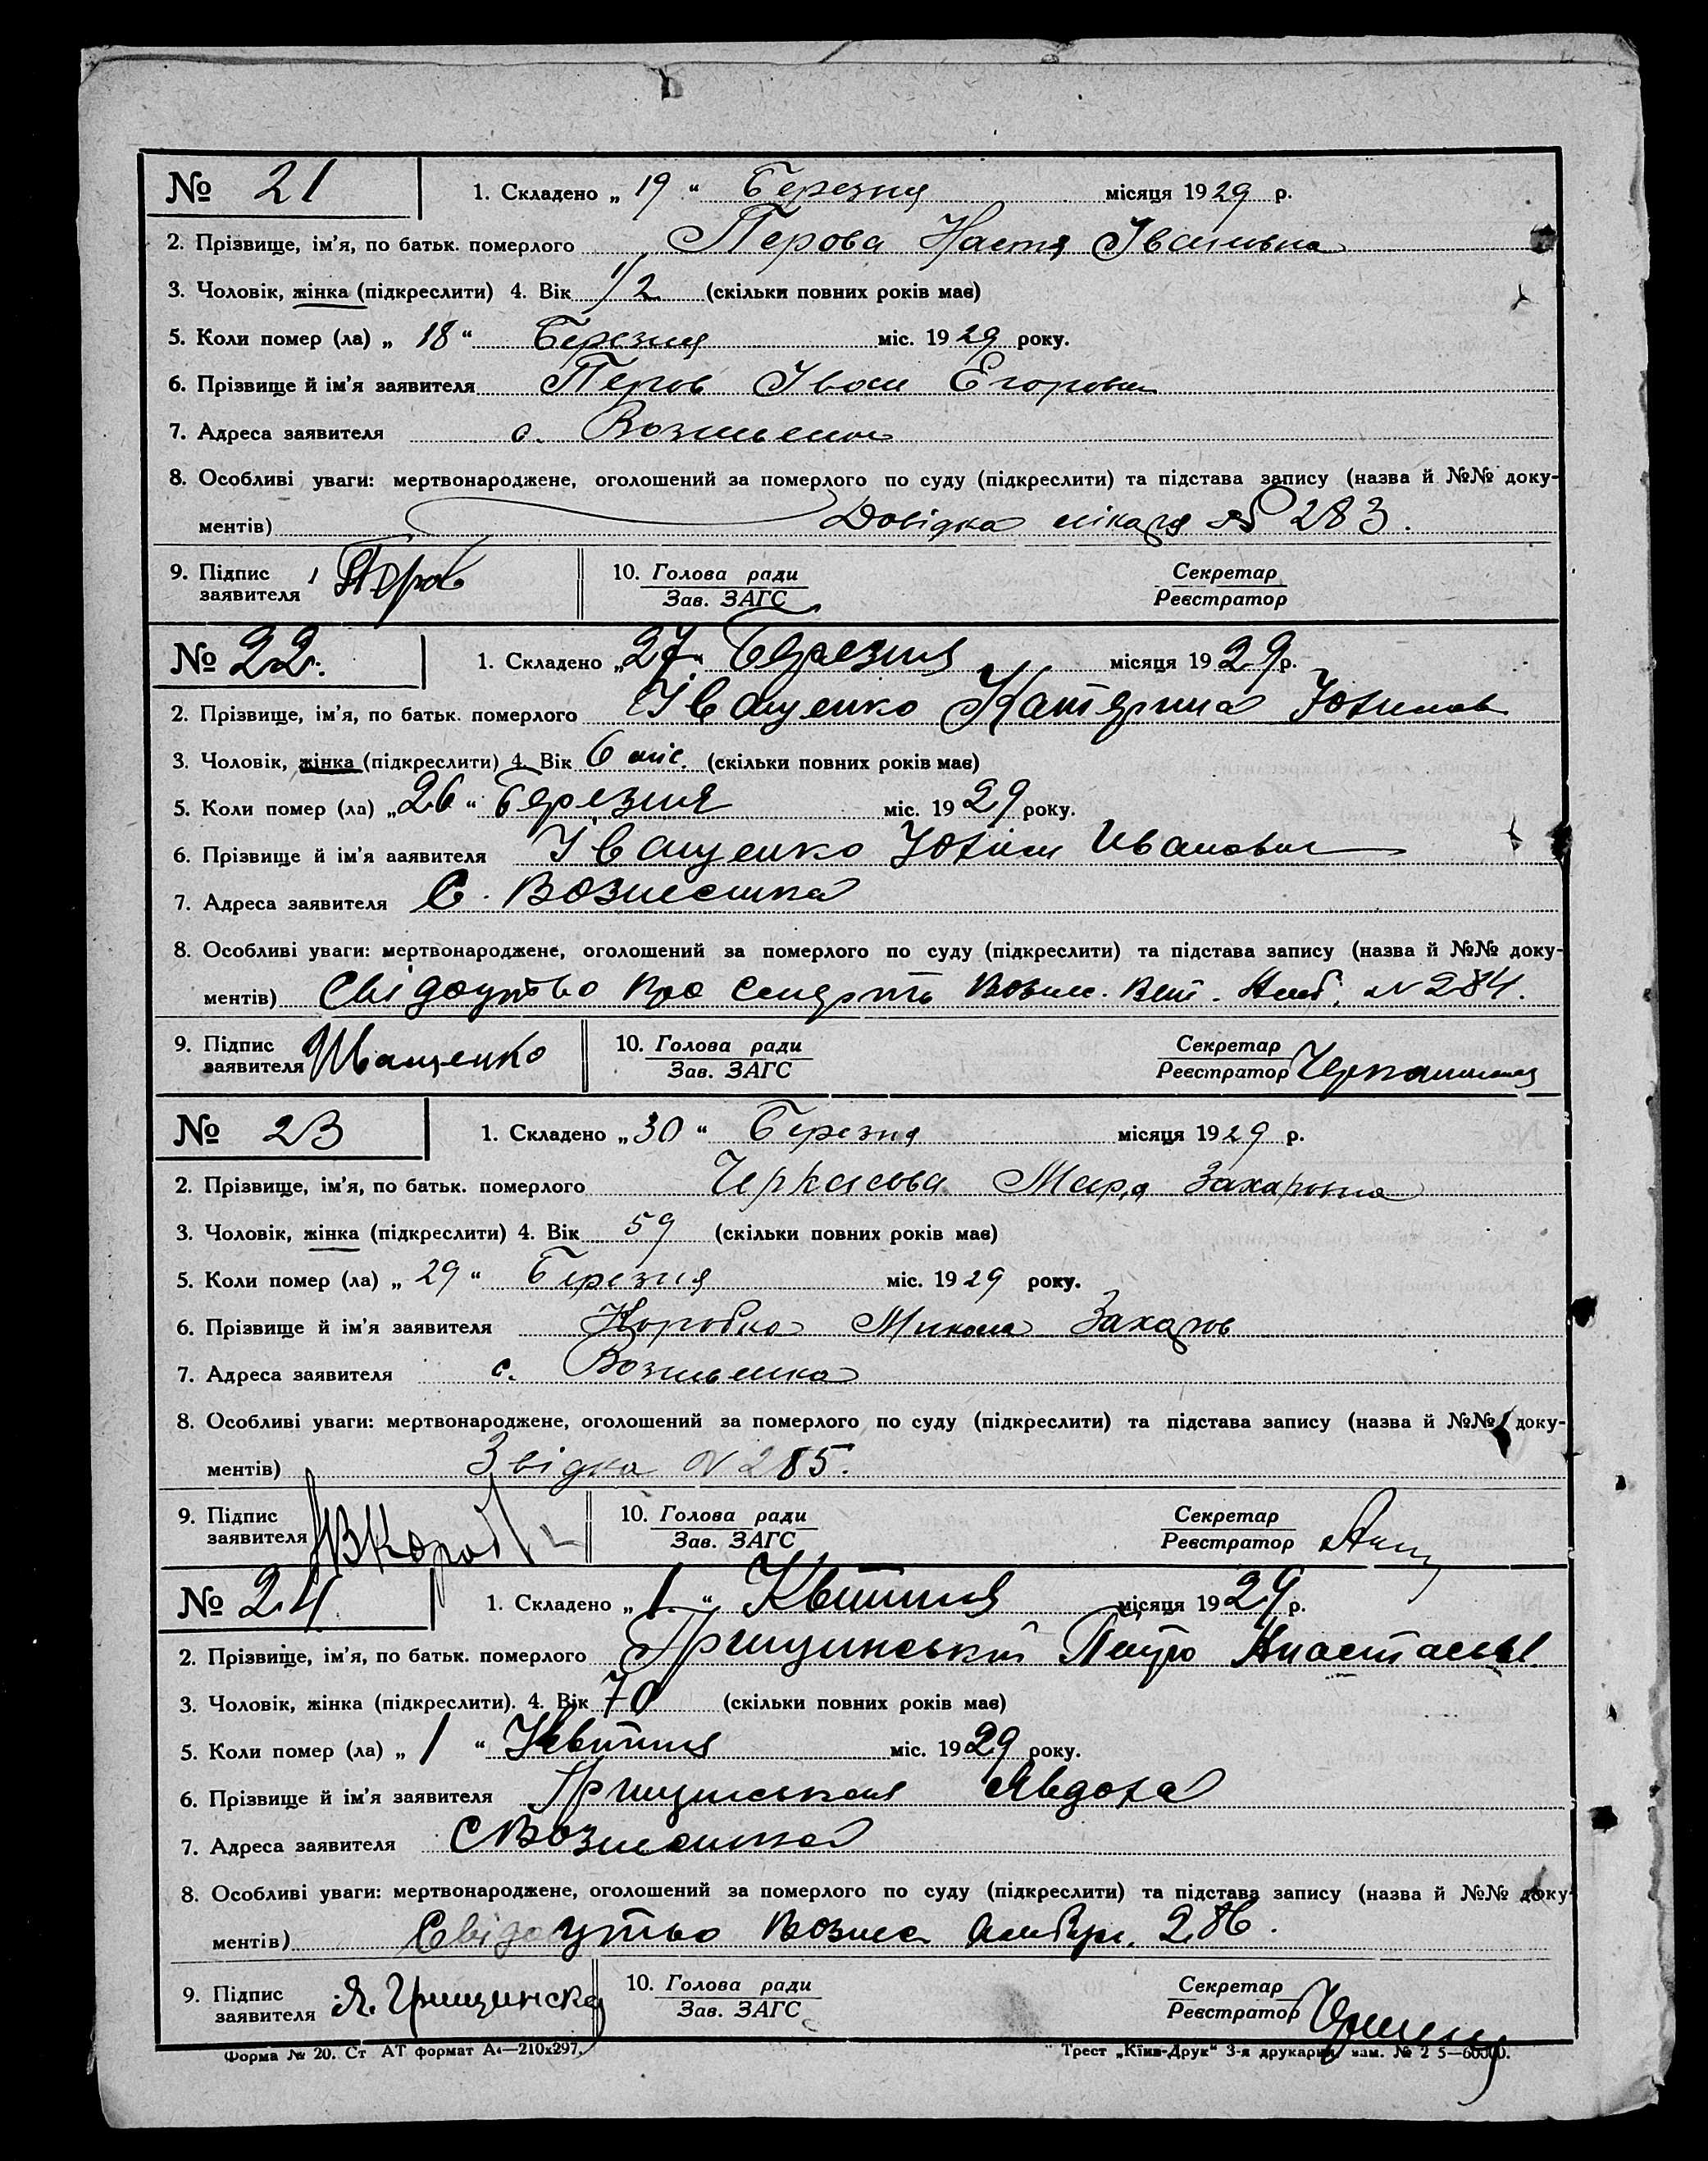 № 21 1. Складено „ 19 “ Березня місяця 1929 р.
2. Прізвище, ім'я, по батьк. померлого Перова Настя Івановна
3. Чоловік, жінка (підкреслити) 4. Вік 1/2 (скільки повних років має)
5. Коли помер (ла) „ 18 “ Березня міс. 1929 року.
6. Прізвище й ім'я заявителя Перов Іван Егорович
7. Адреса заявителя с.
8. Особливі уваги: мертвонароджене, оголошений за померлого по суду (підкреслити) та підстава запису (назва й №№ доку-
ментів) Довідка лікаря № 283.
9. Підпис заявителя Перов 10. Голова ради Секретар
Зав. ЗАГС Реєстратор
№ 22. 1. Складено „27“ Березня місяця 1929р.
2. Прізвище, ім'я, по батьк. померлого Іващенко Катерина Юхимов
3. Чоловік, жінка (підкреслити) 4. Вік 6 міс. (скільки повних років має)
5. Коли помер (ла) „26“ Березня міс. 1929 року.
6. Прізвище й ім'я заявителя Іващенко Юхим Иванович
7. Адреса заявителя С. Вознесенка
8. Особливі уваги: мертвонароджене, оголошений за померлого по суду (підкреслити) та підстава запису (назва й №№ доку-
ментів) Свідоцтво про смерть Вознес. Амб. № 284.
9. Підпис заявителя Иващенко 10. Голова ради Секретар
Зав. ЗАГС Реєстратор
№ 23 1. Складено „30“ Березня місяця 1929 р.
2. Прізвище, ім'я, по батьк. померлого Черкасова Мар'я Захаровна
3. Чоловік, жінка (підкреслити) 4. Вік 59 (скільки повних років має)
5. Коли помер (ла) „ 29 “ Березня міс. 1929 року.
6. Прізвище й ім'я заявителя Коробка Микола Захаров
7. Адреса заявителя с. Вознесенка
8. Особливі уваги: мертвонароджене, оголошений за померлого по суду (підкреслити) та підстава запису (назва й №№ доку-
ментів) Звідка N 285.
9. Підпис заявителя 10. Голова ради Секретар
Зав. ЗАГС Реєстратор
№ 24. 1. Складено „ 1. “ Квітня місяця 1929р.
2. Прізвище, ім'я, по батьк. померлого Грищинський Петро
3. Чоловік, жінка (підкреслити). 4. Вік 70 (скільки повних років має)
5. Коли помер (ла) „ 1 “ Квітня міс. 1929 року.
6. Прізвище й ім'я заявителя Грищинская Явдоха
7. Адреса заявителя С Вознесенка
8. Особливі уваги: мертвонароджене, оголошений за померлого по суду (підкреслити) та підстава запису (назва й №№ доку-
ментів) Свідоцтво Вознес. 286.
9. Підпис заявителя Я. Грищинска 10. Голова ради Секретар
Зав. ЗАГС Реєстратор
Форма № 20. Ст АТ формат А4—210х297. Трест „Київ-Друк“ 3-я друкарня